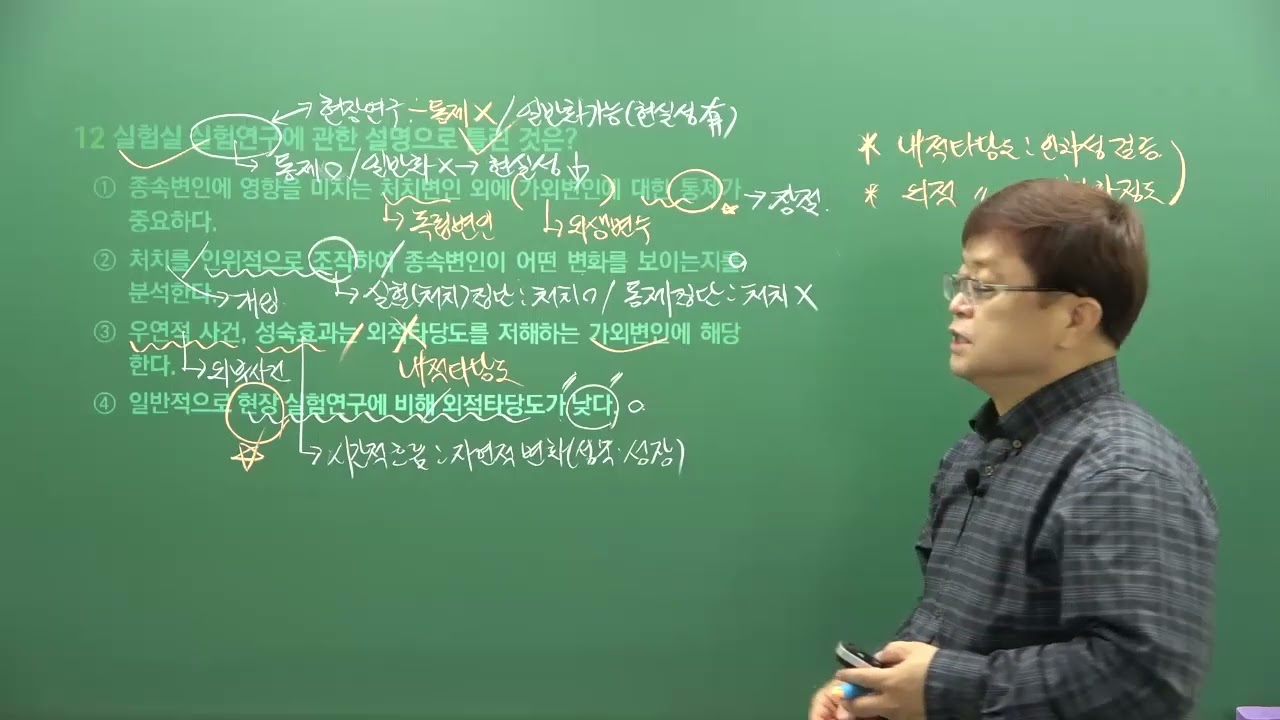 현장연구 ÷ 통제 X / 일반화가능(현실성 有)
12 실험실 실험연구에 관한 설명으로 틀린 것은?
통제 O / 일반화 X → 현실성 ↓
① 종속변인에 영향을 미치는 처치변인 외에 (가외변인)에 대한 통제가
→ 장점.
중요하다.
독립변인
외생변수
② 처치를 인위적으로 조작하여 종속변인이 어떤 변화를 보이는지를
분석한다.
→ 개입
→ 실험(처치)집단 : 처치 O / 통제집단 : 처치 X
③ 우연적 사건, 성숙효과는 외적타당도를 저해하는 가외변인에 해당
한다.
→ 외부사건
내적타당도
④ 일반적으로 현장 실험연구에 비해 외적타당도가 낮다. O
→ 시간적흐름 : 자연적 변화(성숙·성장)
* 내적타당도 : 인과성 검증
* 외적 〃